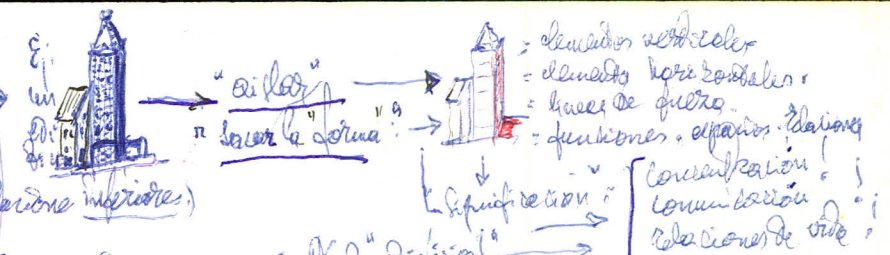 Ej.
un
"aislar"
"sacar la "forma"."
= elementos verticales
= elementos horizontales.
= lineas de fuerza.
= funciones. espacios. relaciones
inferiores.)
"Significación"
concentración!
comunicación
relaciones de vida